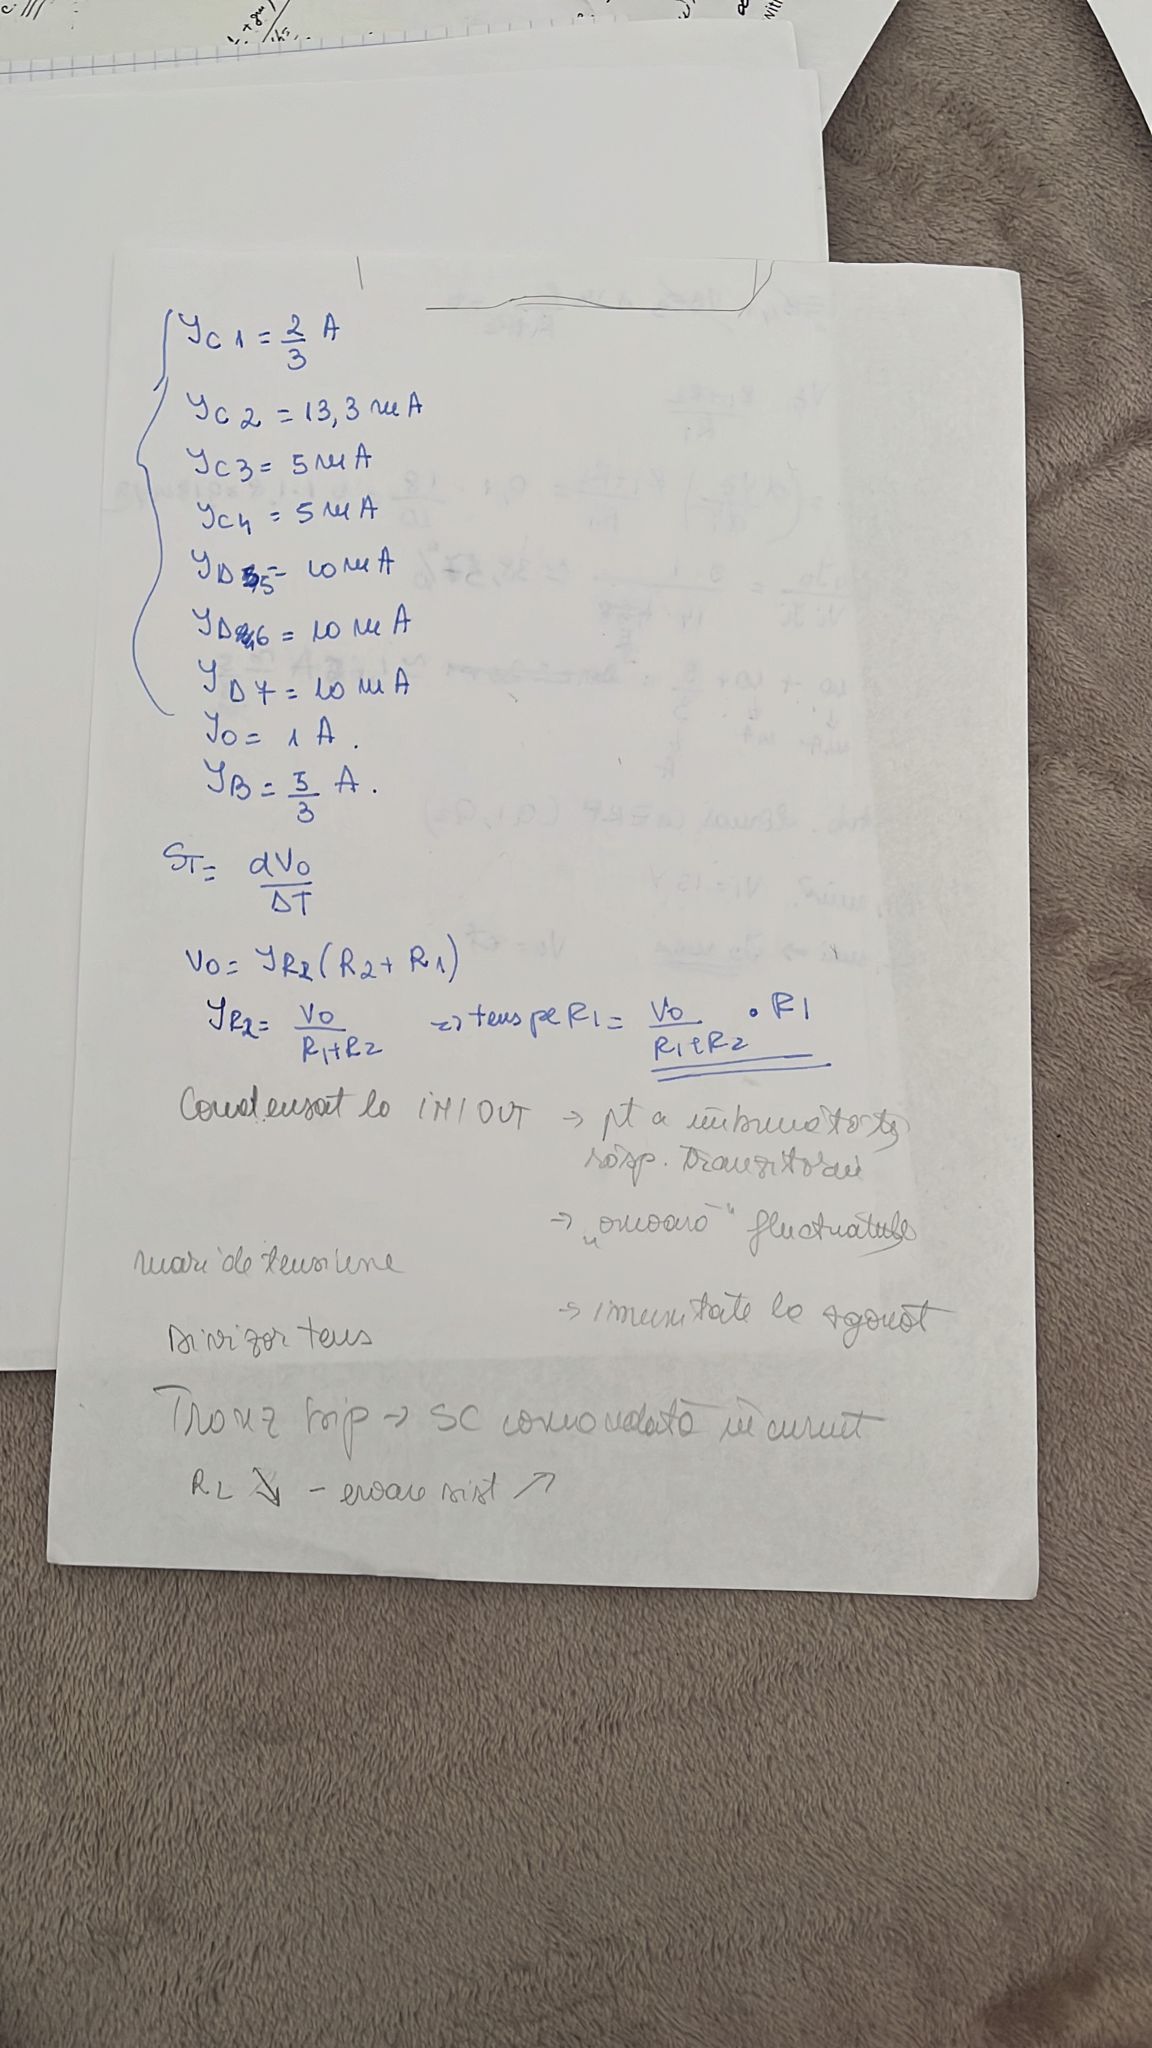 I_C1 = 2/3 A
I_C2 = 13,3 mA
I_C3 = 5 mA
I_C4 = 5 mA
I_D5 = 10 mA
I_D6 = 10 mA
I_D7 = 10 mA
I_O = 1 A.
I_B = 5/3 A.
S_T = dV_O/ΔT
V_O = I_R2 (R2 + R1)
I_R2 = V_O/(R1+R2) => tens pe R1 = V_O/(R1+R2) • R1
Condensat la IN/OUT → pt a îmbunătăți
răsp. tranzitoriu
→ „omoară" fluctuațiile
mari de tensiune
→ imunitate la zgomot
Divizor tens
Tranz bip → SC comandată în curent
RL ↘ - eroare sist ↗